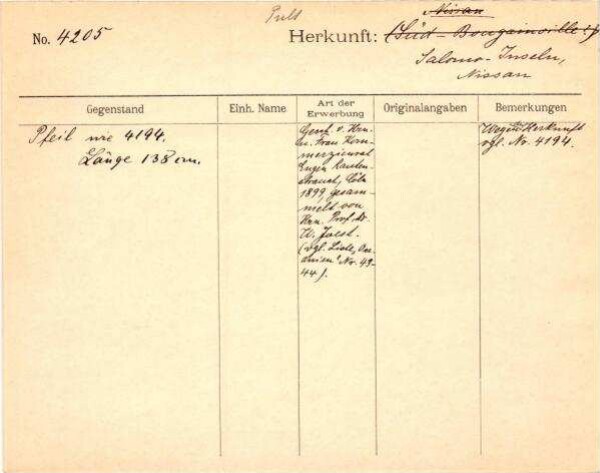 Pult
Nissan
No. 4205
Herkunft: (Süd-Bougainville!)
Salomo-Inseln,
Nissan
Gegenstand
Einh. Name
Art der
Erwerbung
Originalangaben
Bemerkungen
Pfeil wie 4194.
Länge 138 cm.
Gesch. v. Hrn.
u. Frau Kom-
merzienrat
Eugen Rauten-
strauch, Cöln
1899, gesam-
melt von
Hrn. Prof. Dr.
W. Joest.
(vgl. Liste,
Nr. 43-
44).
Wegen Herkunft
vgl. Nr. 4194.